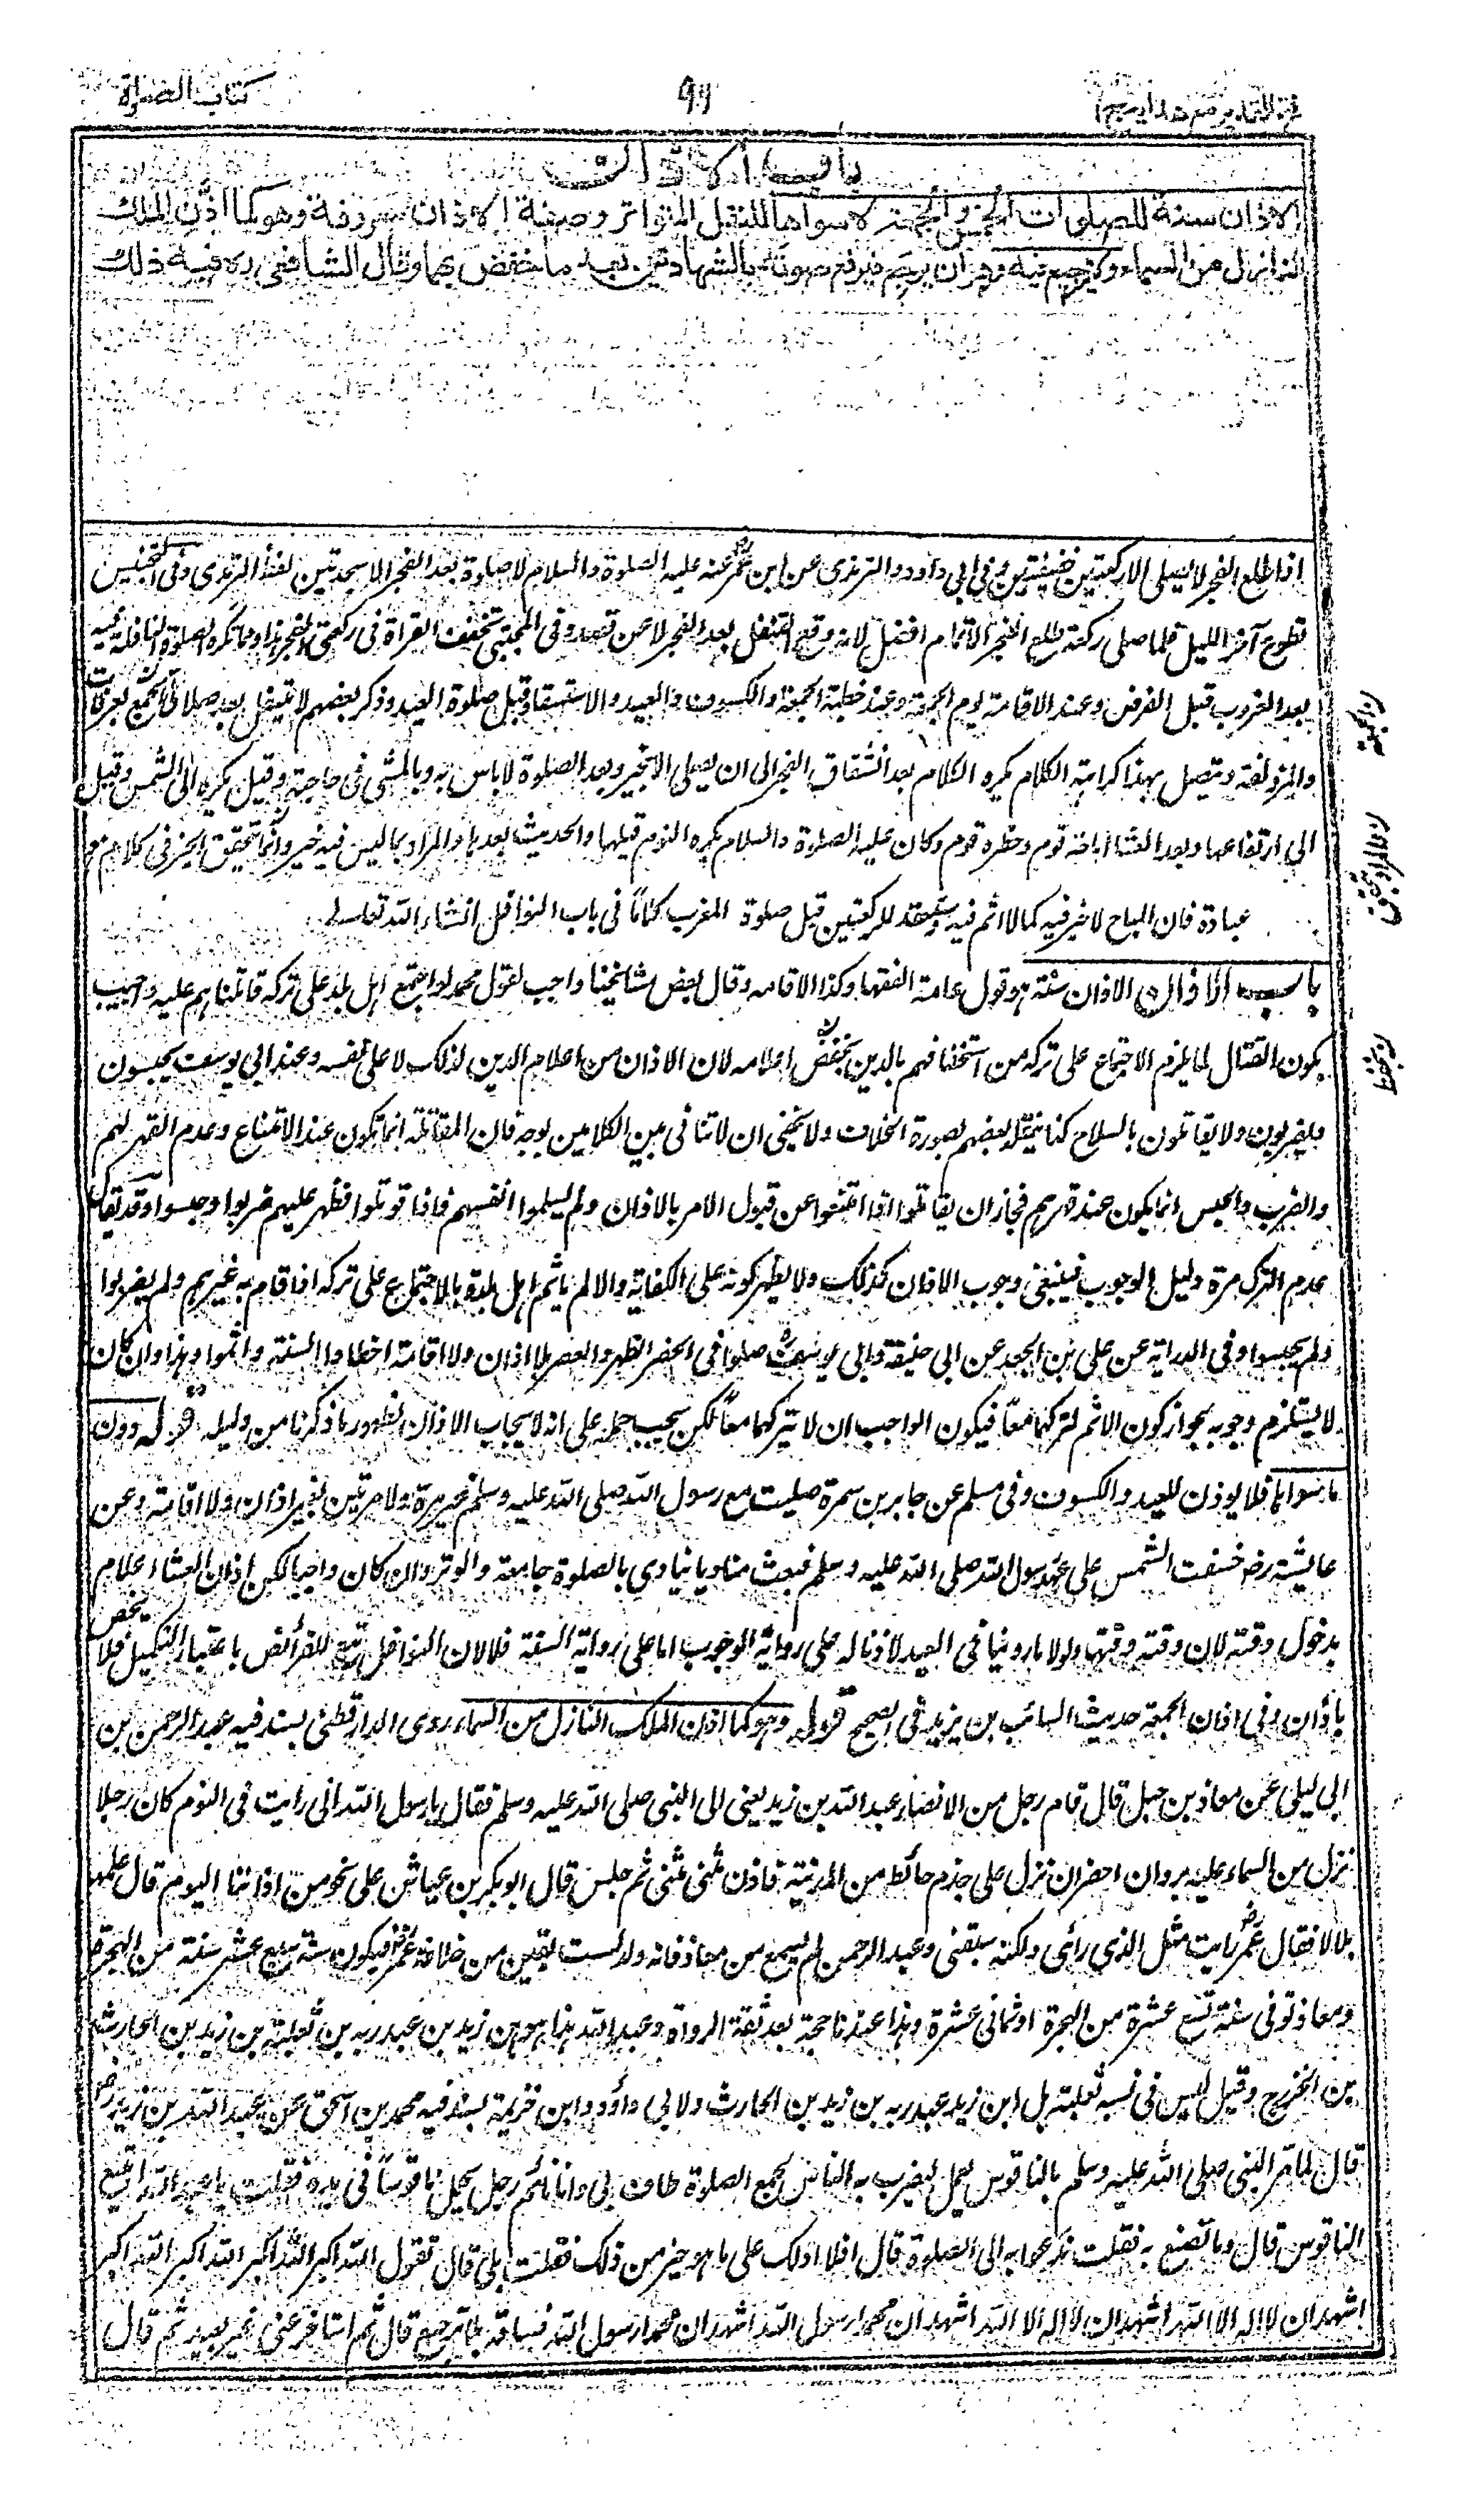 فتح القدير مع هدايه ج ١
٩٩
كتاب الصلوة
باب الاذان
الاذان سنة للصلوات الخمس والجمعة لا سواها للنقل المتواتر وصفة الاذان معروفة وهو كما اذن الملك
النازل من السماء ولا ترجيع فيه وهو ان يرجع فيرفع صوته بالشهادتين بعد ما خفض بهما وقال الشافعي ره فيه ذلك
اذا طلع الفجر لا يصلى الا ركعتين خفيفتين وفى ابى داود والترمذى عن ابن عمر عنه عليه الصلوة والسلام لا صلوة بعد الفجر الا سجدتين لفظ الترمذى وفى التجنيس
تطوع آخر الليل فلما صلى ركعة طلع الفجر الاتمام افضل لانه وقع التنفل بعد الفجر لا عن قصد وفى المجتبى تخفف القراة فى ركعتى الفجر هذا ومما تكره الصلوة النافلة فيه
بعد الغروب قبل الفرض وعند الاقامة يوم الجمعة وعند خطبة الجمعة والكسوف والعيد والاستسقا وقبل صلوة العيد وذكر بعضهم لا يتنفل بعد صلاتى الجمع بعرفات
والمزدلفة ويتصل بهذا كراهة الكلام يكره الكلام بعد انشقاق الفجر الى ان يصلى الا بخير وبعد الصلوة لا باس به وبالمشى فى حاجته وقيل يكره الى الشمس وقيل
الى ارتفاعها وبعد العشا اباحه قوم وحظره قوم وكان عليه الصلوة والسلام يكره النوم قبلها والحديث بعدها والمراد بما ليس فيه خير وانما يتحقق الخير فى كلام هو
عبادة فان المباح لا خير فيه كما لا اثم فيه وسنعقد للركعتين قبل صلوة المغرب كلاما فى باب النوافل انشاء الله تعالى
باب الاذان الاذان سنة هو قول عامة الفقها وكذا الاقامه وقال بعض مشائخنا واجب لقول محمد لو اجتمع اهل بلد على تركه قاتلناهم عليه واجيب
بكون القتال لما يلزم الاجتماع على تركه من استخفافهم بالدين بخفض اعلامه لان الاذان من اعلام الدين لذلك لا على نفسه وعند ابى يوسف يحبسون
ويضربون ولا يقاتلون بالسلاح كذا نقله بعضهم بصورة الخلاف ولا يخفى ان لا تنافى بين الكلامين بوجه فان المقاتلة انما تكون عند الامتناع وعدم القهر لهم
والضرب والحبس انما يكون عند قهرهم فجاز ان يقاتلوا اذا امتنعوا عن قبول الامر بالاذان ولم يسلموا انفسهم فاذا قوتلوا فظهر عليهم ضربوا وحبسوا وقد يقال
عدم الترك مرة دليل الوجوب فينبغى وجوب الاذان كذلك ولا يظهر كونه على الكفاية والا لم ياثم اهل بلدة بالاجتماع على تركه اذا قام به غيرهم ولم يضربوا
ولم يحبسوا وفى الدراية عن على بن الجعد عن ابى حنيفة وابى يوسف صلوا فى الحضر الظهر والعصر بلا اذان ولا اقامة اخطاوا السنة واثموا وهذا وان كان
لا يستلزم وجوبه بجواز كون الاثم لتركهما معا فيكون الواجب ان لا يتركهما معا لكن يجب حمله على انه لا يجاب الاذان لظهور ما ذكرنا من دليله قوله دون
ما سواها فلا يوذن للعيد والكسوف وفى مسلم عن جابر بن سمرة صليت مع رسول الله صلى الله عليه وسلم غير مرة ولا مرتين بغير اذان ولا اقامة وعن
عايشة رض خسفت الشمس على عهد رسول الله صلى الله عليه وسلم فبعث مناديا ينادى بالصلوة جامعة والوتر وان كان واجبا لكن اذان العشاء اعلام
بدخول وقته لان وقته وقتها ولولا ما روينا فى العيد لاذنا له على رواية الوجوب اما على رواية السنة فلان النوافل تبع للفرائض باعتبار التكميل فلا يخص
باذان وفى اذان الجمعة حديث السائب بن يزيد فى الصحيح قوله وهو كما اذن الملك النازل من السماء روى الدارقطنى بسند فيه عبد الرحمن بن
ابى ليلى عن معاذ بن جبل قال قام رجل من الانصار عبد الله بن زيد يعنى الى النبى صلى الله عليه وسلم فقال يا رسول الله انى رايت فى النوم كان رجلا
نزل من السماء عليه بردان اخضران نزل على جذم حائط من المدينة فاذن مثنى مثنى ثم جلس قال ابو بكر بن عياش على نحو من اذاننا اليوم قال علمه
بلالا فقال عمر رض رايت مثل الذى راى ولكنه سبقنى وعبد الرحمن لم يسمع من معاذ فانه ولد لست بقين من خلافة عمر فيكون سنة سبع عشر سنة من الهجرة
ومعاذ توفى سنة تسع عشرة من الهجرة او ثمانى عشرة وهذا عندنا حجة بعد ثقة الرواة وعبد الله هذا هو ابن زيد بن عبد ربه بن ثعلبة بن زيد بن الحارث
بن الخزرج وقيل ليس فى نسبه ثعلبة بل ابن زيد عبد ربه بن زيد بن الحارث ولابى داؤد وابن خزيمة بسند فيه محمد بن اسحق عن عبد الله بن زيد رض
قال لما امر النبى صلى الله عليه وسلم بالناقوس يعمل ليضرب به الناس لجمع الصلوة طاف بى وانا نائم رجل يحمل ناقوسا فى يده فقلت يا عبد الله اتبيع
الناقوس قال وما تصنع به فقلت ندعوا به الى الصلوة قال افلا ادلك على ما هو خير من ذلك فقلت بلى قال تقول الله اكبر الله اكبر الله اكبر الله اكبر
اشهد ان لا اله الا الله اشهد ان لا اله الا الله اشهد ان محمدا رسول الله اشهد ان محمدا رسول الله فساقه بلا ترجيع قال ثم استاخر عنى غير بعيد ثم قال